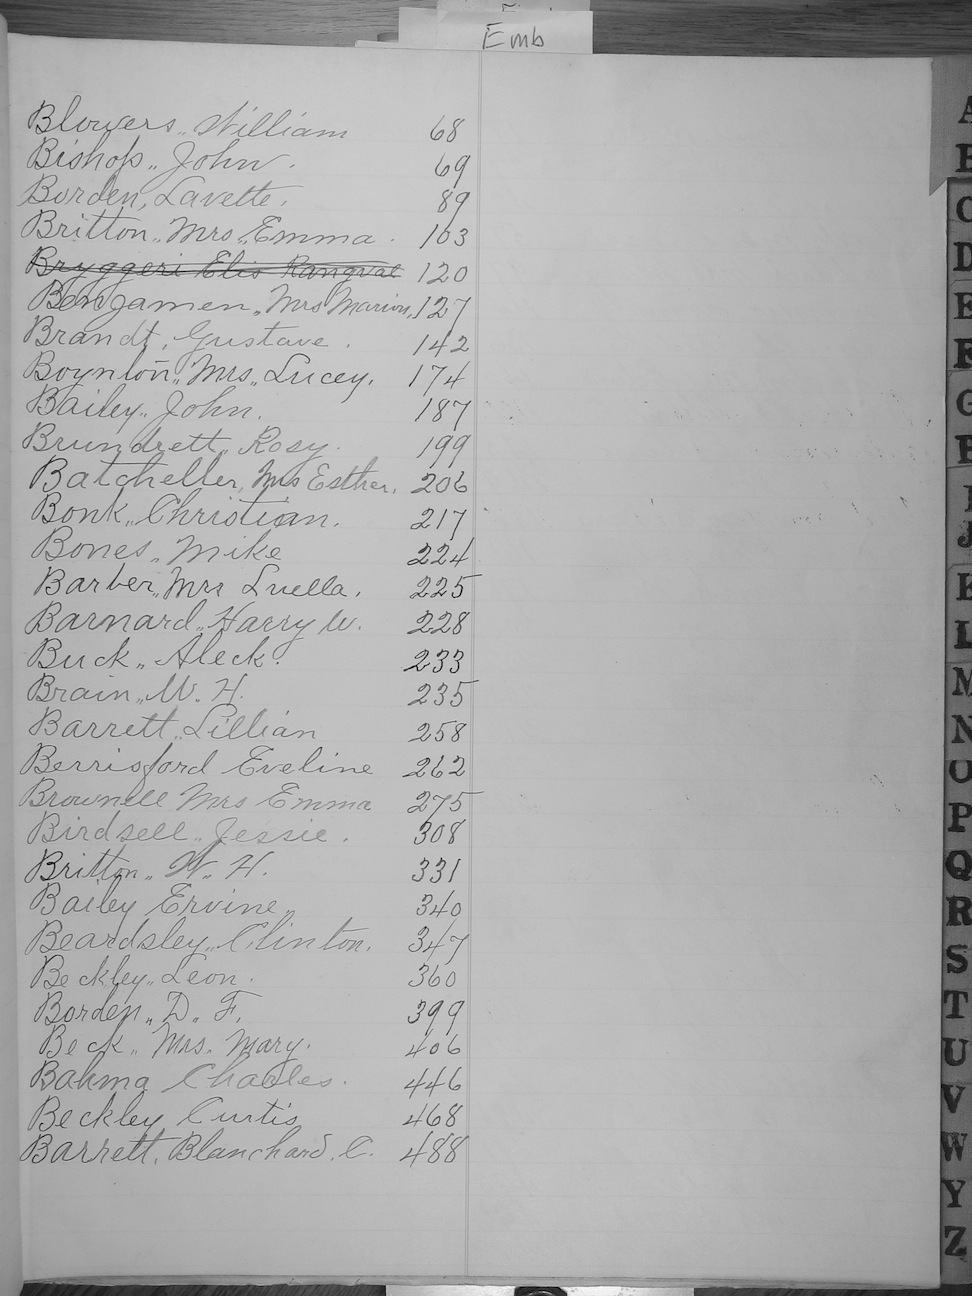 Emb
Blowers, William 68
Bishop, John. 69
Borden, Lavette. 89
Britton, Mrs. Emma. 103
Bryggeri Elis Rangval 120
Benjamen, Mrs Marion, 127
Brandt, Gustave. 142
Boynton, Mrs, Lucey. 174
Bailey, John. 187
Brundrett, Rosy. 199
Batcheller, Mrs Esther. 206
Bonk, Christian. 217
Bones, Mike 224
Barber, Mrs Luella. 225
Barnard, Harry W. 228
Buck, Aleck. 233
Brain, W. H. 235
Barrett, Lillian 258
Berrisford Eveline 262
Brownell Mrs Emma 275
Birdsell, Jessie. 308
Britton, W. H. 331
Bailey Ervine, 340
Beardsley, Clinton. 347
Beckley, Leon. 360
Borden, D. F. 399
Beck, Mrs. Mary. 406
Bahma Charles. 446
Beckley Curtis 468
Barrett, Blanchard. C. 488
A
B
C
D
E
F
G
H
I
J
K
L
M
N
O
P
Q
R
S
T
U
V
W
Y
Z